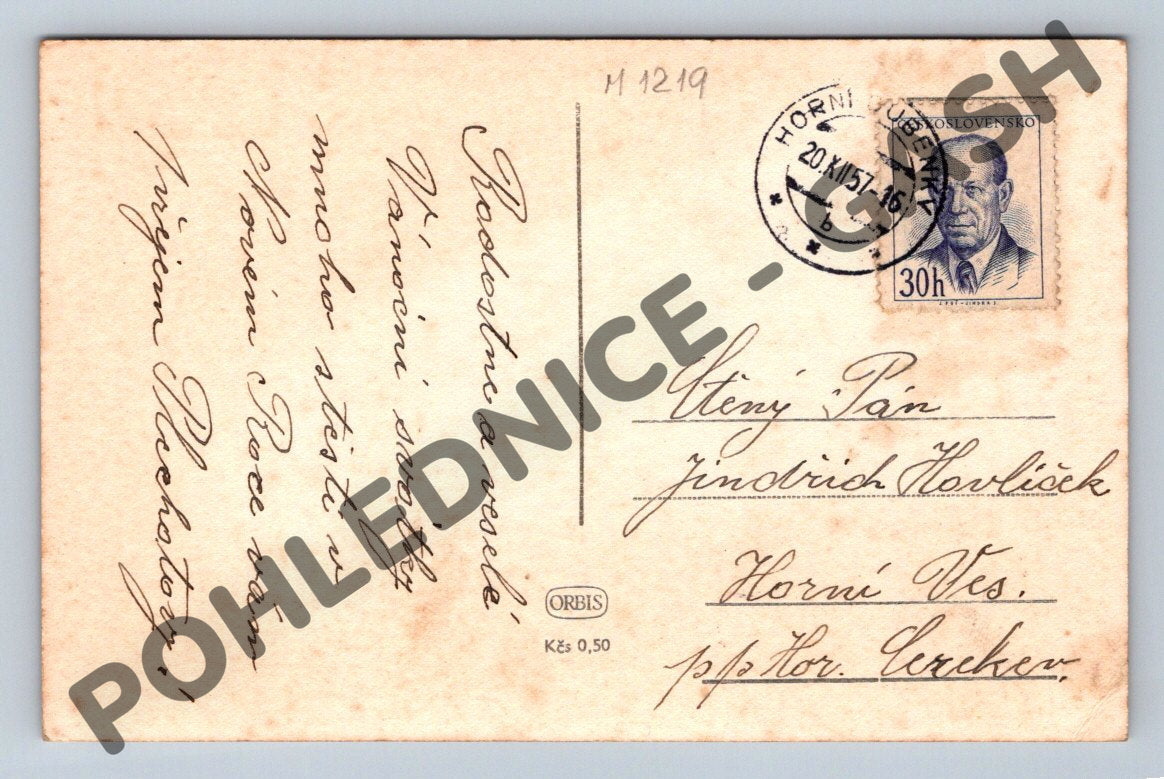 M 1219
HORNÍ DUBENKY
20.XII.57-16
b
ČESKOSLOVENSKO
30h
Radostne a veselé
Vánoční svátky
mnoho štěstí v
Novém Roce vám
přejem Plachatovi
Ctěný Pán
Jindřich Havlíček
Horní Ves.
pp Hor. Cerekev.
ORBIS
Kčs 0,50
POHLEDNICE - GASH